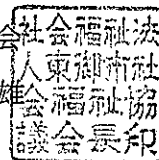 社会福祉法
人東御市社
会福祉協
議会長印
会
雄